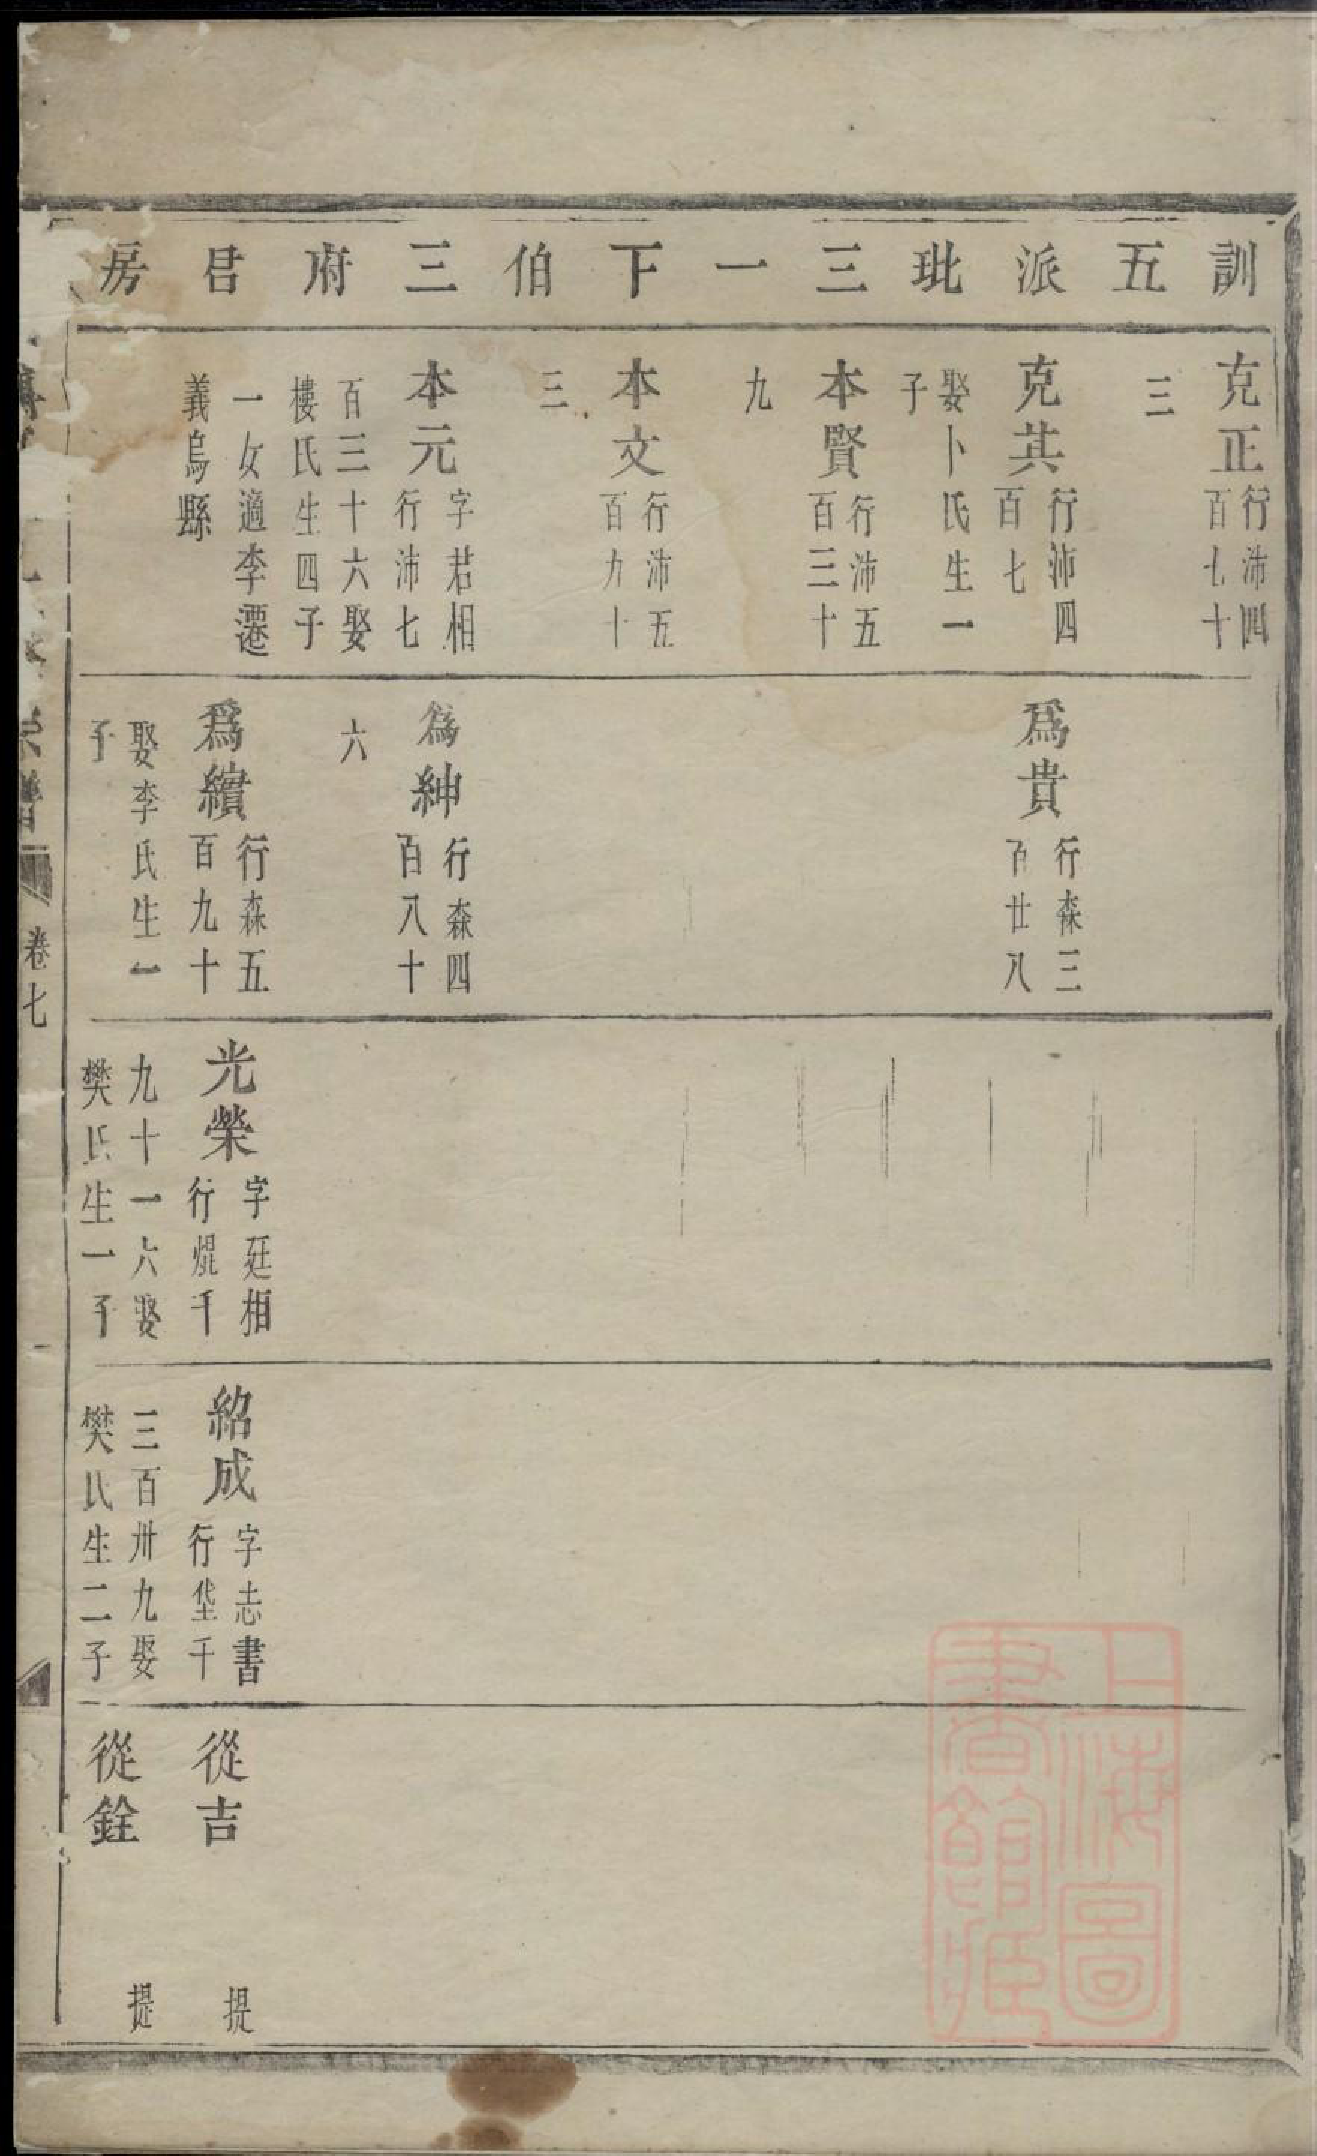 訓五派玭三一下伯三府君房
克正
行沛四
百七十
三
克其
行沛四
百七
娶卜氏生一
子
本賢
行沛五
百三十
九
本文
行沛五
百九十
三
本元
字君相
行沛七
百三十六娶
樓氏生四子
一女適李遷
義烏縣
爲貴
行森三
百廿八
爲紳
行森四
百八十
六
爲續
行森五
百九十
娶李氏生一
子
光榮
字廷相
行焜千
九十一六娶
樊氏生一子
紹成
字志書
行垡千
三百卅九娶
樊氏生二子
從吉
提
從銓
提
卷七
上海圖
書館藏